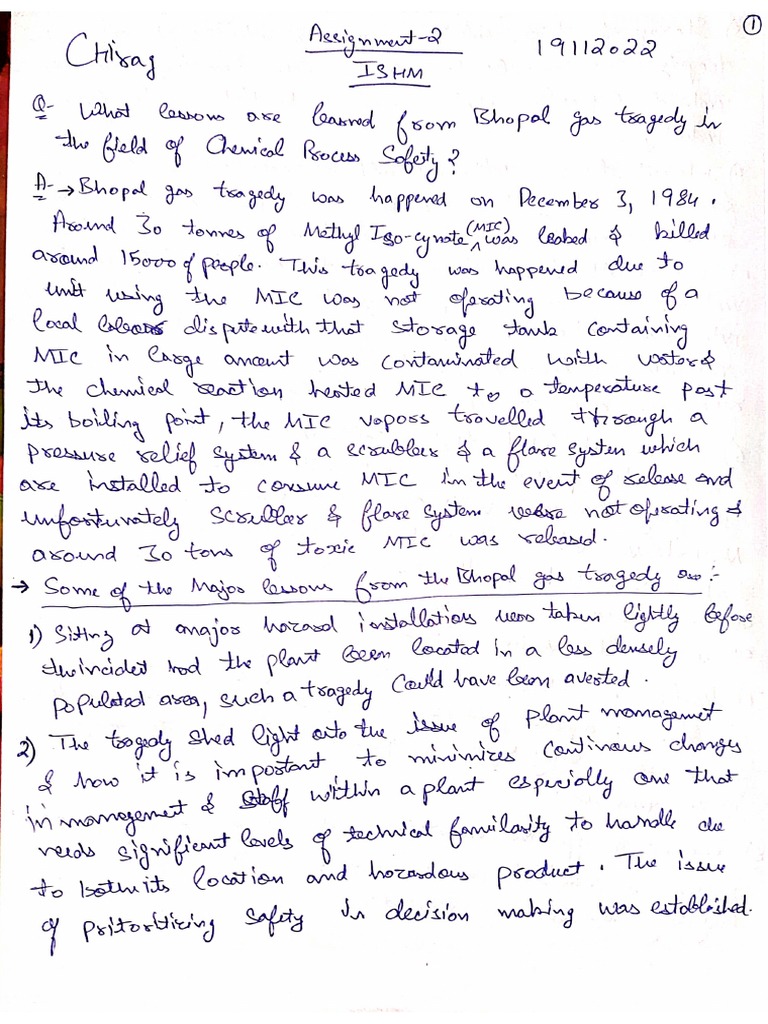 ①
Assignment-2
Chirag 19112022
ISHM
Q- What lessons are learned from Bhopal gas tragedy in
the field of Chemical Process Safety?
A- → Bhopal gas tragedy was happened on December 3, 1984.
Around 30 tonnes of Methyl Iso-cynate (MIC) was leaked & killed
around 15000 of people. This tragedy was happened due to
unit using the MIC was not operating because of a
local labour dispute with that storage tank containing
MIC in large amount was contaminated with water &
the chemical reaction heated MIC to a temperature past
its boiling point, the MIC vapors travelled through a
pressure relief system & a scrubber & a flare system which
are installed to consume MIC in the event of release and
unfortunately scrubber & flare system were not operating &
around 30 tons of toxic MIC was released.
→ Some of the Major lessons from the Bhopal gas tragedy are :-
1) Siting at major hazard installation were taken lightly before
the incident had the plant been located in a less densely
populated area, such a tragedy could have been averted.
2) The tragedy shed light onto the issue of plant management
& how it is important to minimizes continous changes
in management & staff within a plant especially one that
needs significant levels of technical familarity to handle due
to both its location and hazardous product. The issue
of pritoritizing safety in decision making was established.